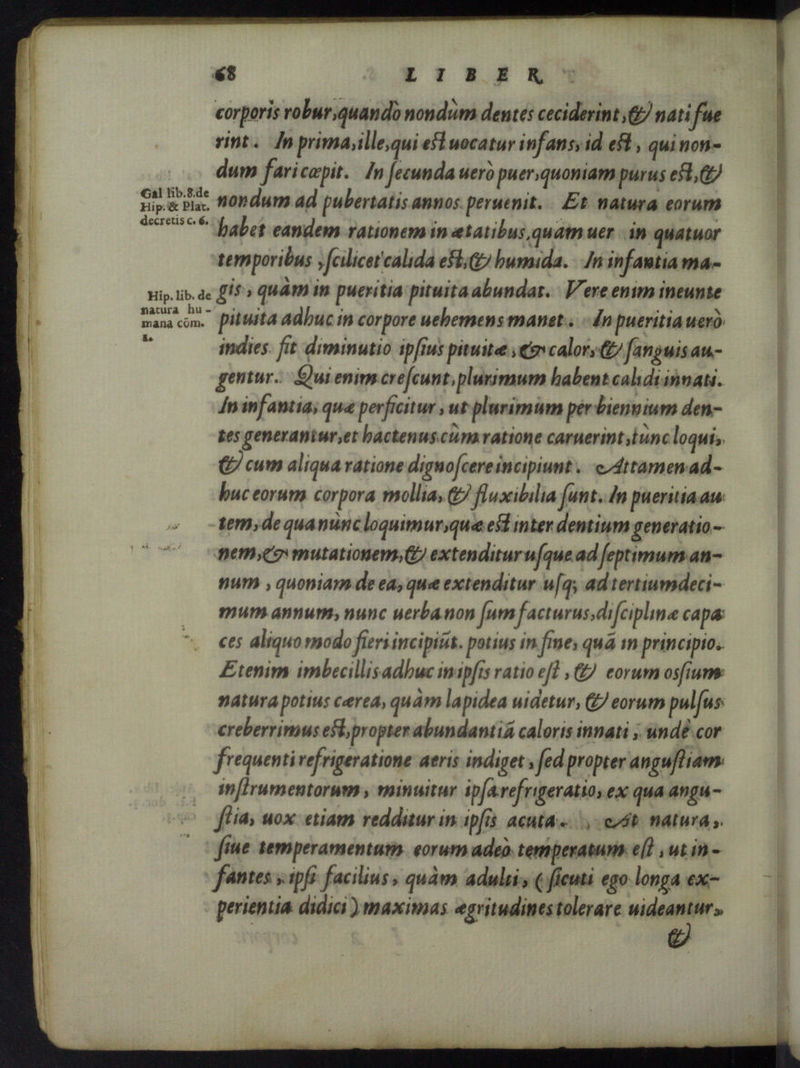 68 LIBER
corporis robur,quando nondùm dentes ceciderint,& nati fue
rint. In prima,ille,qui est uocatur infans, id est, qui non-
dum fari cœpit. In secunda uerò puer,quoniam purus est,&
Gal lib.8.de
Hip.& Plat.
decretis c. 6.
nondum ad pubertatis annos peruenit. Et natura eorum
habet eandem rationem in ætatibus,quàm uer in quatuor
temporibus ,scilicet calida est,& humida. In infantia ma-
Hip. lib. de
natura hu-
mana cōm.
1.
gis, quàm in pueritia pituita abundat. Vere enim ineunte
pituita adhuc in corpore uehemens manet. In pueritia uerò
indies fit diminutio ipsius pituitæ, & calor, & sanguis au-
gentur. Qui enim crescunt,plurimum habent calidi innati.
In infantia, quæ perficitur, ut plurimum per biennium den-
tes generantur,et hactenus cùm ratione caruerint,tùnc loqui,
& cum aliqua ratione dignoscere incipiunt. Attamen ad-
huc eorum corpora mollia, & fluxibilia sunt. In pueritia au
tem, de qua nùnc loquimur,quæ est inter dentium generatio-
nem,& mutationem,& extenditur usque ad septimum an-
num , quoniam de ea, quæ extenditur usq; ad tertiumdeci-
mum annum, nunc uerba non sum facturus,disciplinæ capa
ces aliquo modo fieri incipiūt. potius in fine, quā in principio.
Etenim imbecillis adhuc in ipsis ratio est, & eorum ossium
natura potius cærea, quàm lapidea uidetur, & eorum pulsus
creberrimus est,propter abundantiā caloris innati, undè cor
frequenti refrigeratione aeris indiget, sed propter angustiam
instrumentorum, minuitur ipsa refrigeratio, ex qua angu-
stia, uox etiam redditur in ipsis acuta. At natura,
siue temperamentum eorum adeò temperatum est, ut in-
fantes, ipsi facilius, quàm adulti, (sicuti ego longa ex-
perientia didici) maximas ægritudines tolerare uideantur,
&